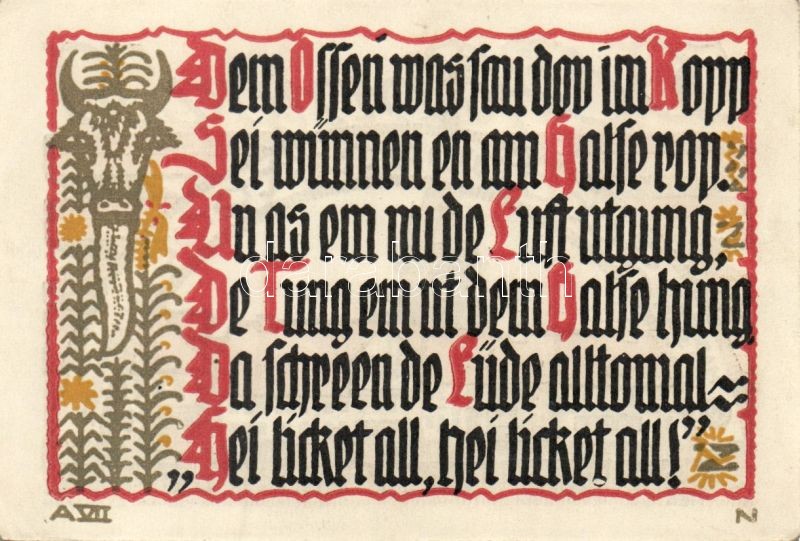 Dem Ossen was sau dov im Kopp
Sei wünnen en am Halse rop.
Un as em nu de Luft utgung,
De Tung em ut dem Halse hung,
Da schreen de Lüde alltomal ~
„Hei licket all, hei licket all!”
darabanth
A VII
N